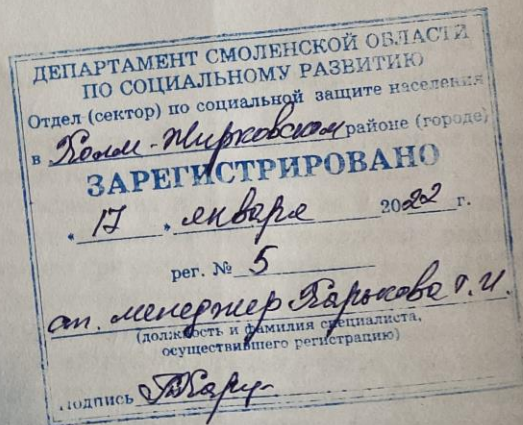 ДЕПАРТАМЕНТ СМОЛЕНСКОЙ ОБЛАСТИ
ПО СОЦИАЛЬНОМУ РАЗВИТИЮ
Отдел (сектор) по социальной защите населения
в Холм-Жирковском районе (городе)
ЗАРЕГИСТРИРОВАНО
"17" января 2022 г.
рег. № 5
ст. менеджер Карькова Т.И.
(должность и фамилия специалиста,
осуществившего регистрацию)
Подпись